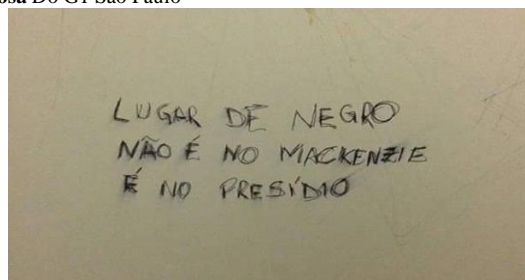 osa Do G1 São Paulo
LUGAR DE NEGRO
NÃO É NO MACKENZIE
É NO PRESÍDIO